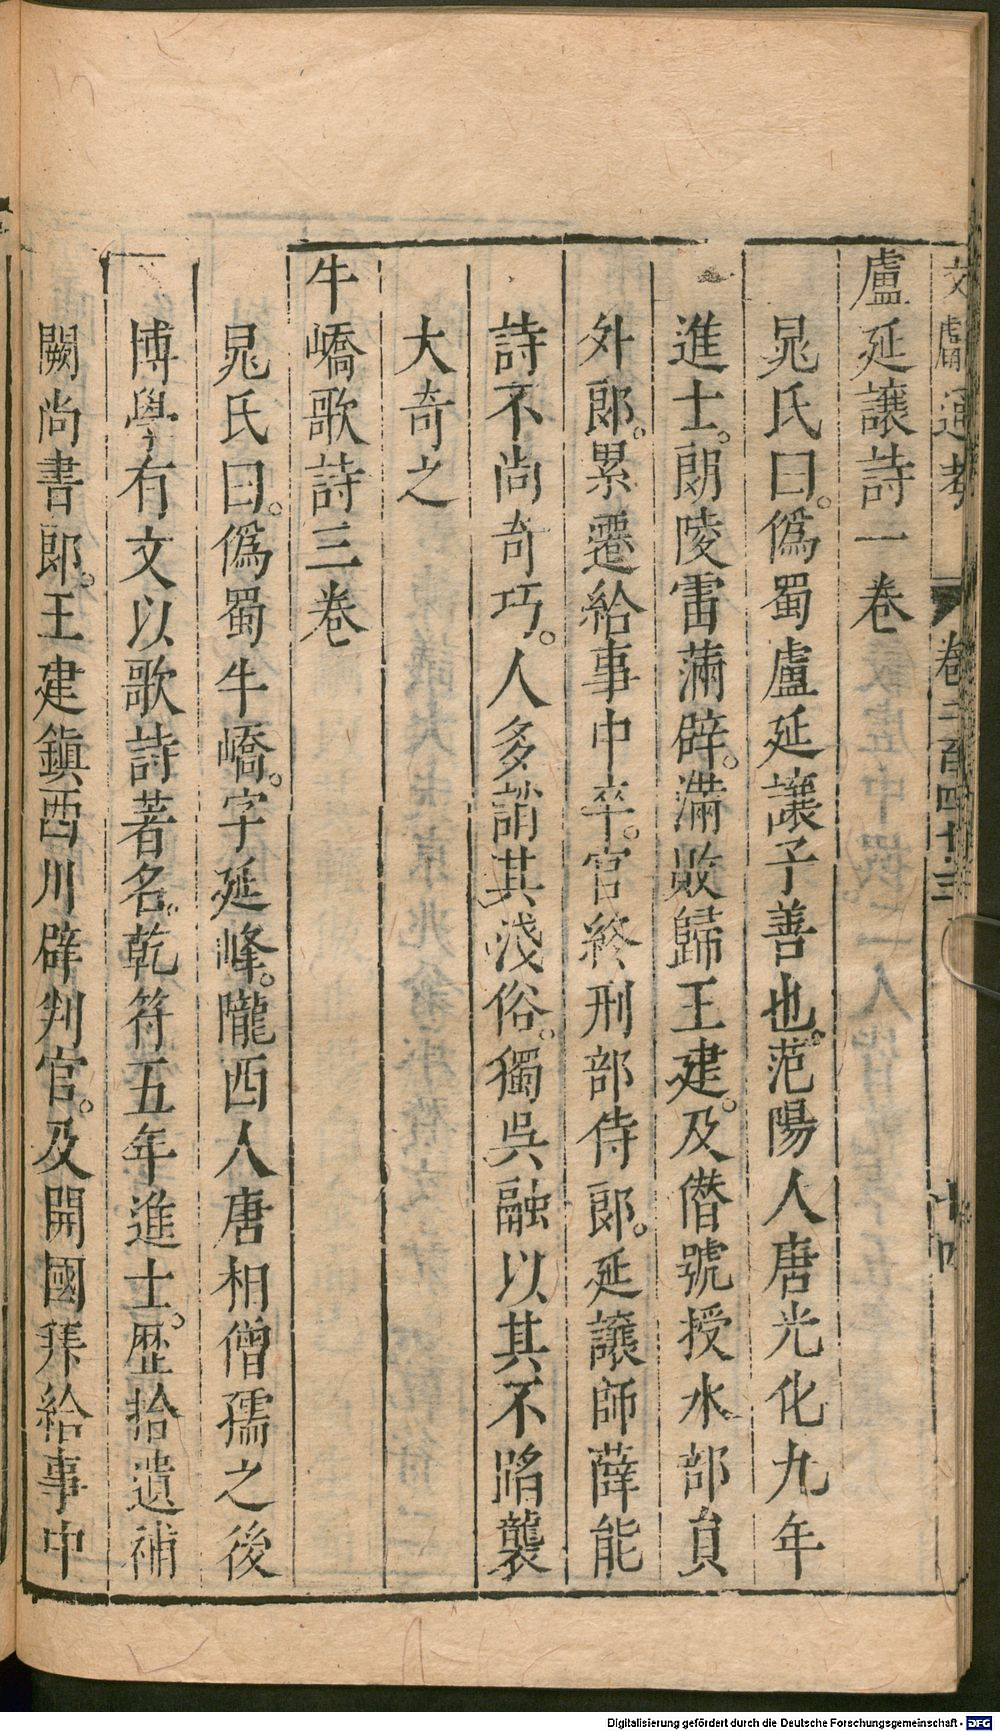 文獻通考 卷二百四十三 十四
盧延讓詩一卷
晁氏曰。僞蜀盧延讓子善也。范陽人唐光化九年
進士。朗陵雷滿辟。滿敗歸王建。及僭號授水部員
外郎。累遷給事中卒。官終刑部侍郎。延讓師薛能
詩不尚奇巧。人多誚其淺俗。獨吳融以其不蹈襲
大奇之
牛嶠歌詩三卷
晁氏曰。僞蜀牛嶠。字延峰。隴西人唐相僧孺之後
博學有文以歌詩著名。乾符五年進士。歷拾遺補
闕尚書郎。王建鎮西川辟判官。及開國拜給事中
Digitalisierung gefördert durch die Deutsche Forschungsgemeinschaft - DFG